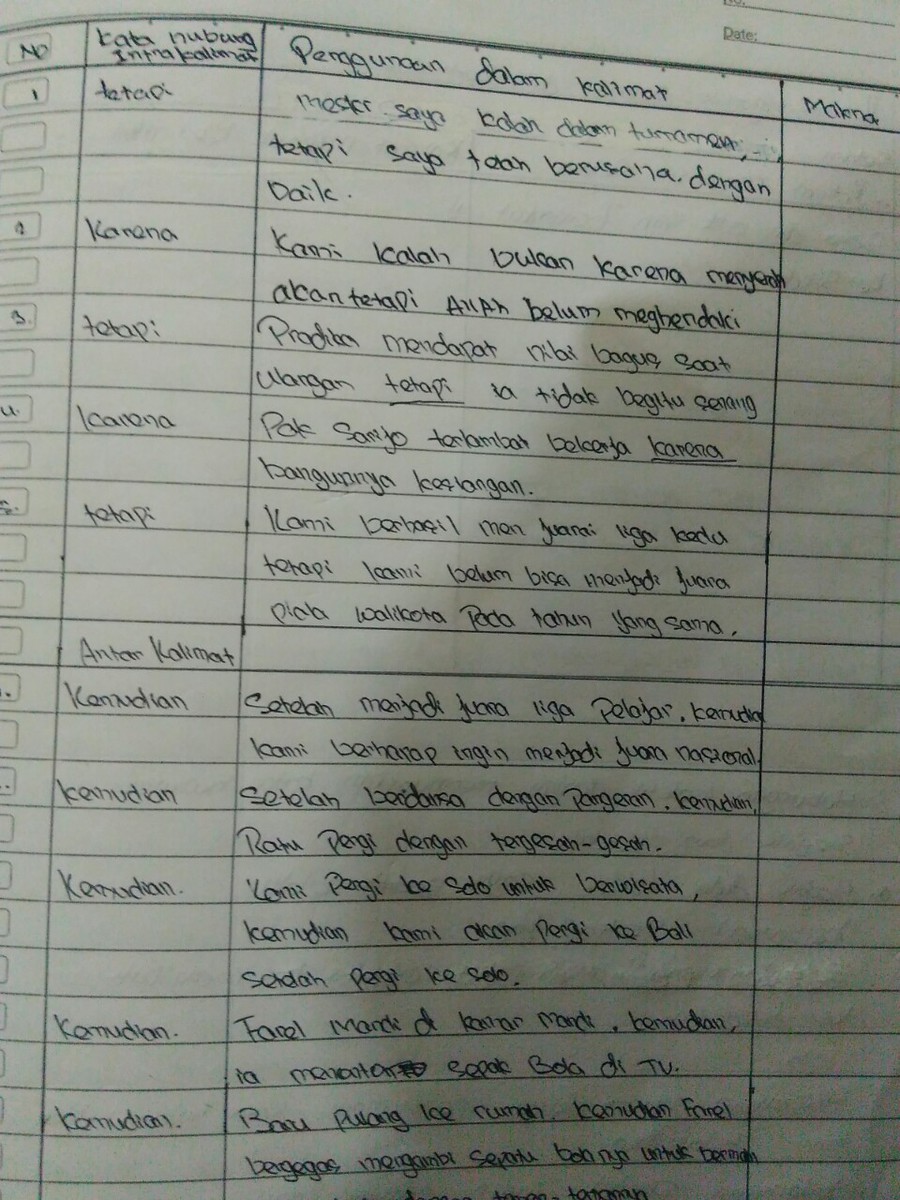 No.
Date:
No Kata hubung Intrakalimat Penggunaan dalam kalimat Makna
1 tetapi meski saya kalah dalam turnamen,
tetapi saya telah berusaha dengan
baik.
2 Karena Kami kalah bukan karena menyerah
akan tetapi Allah belum meghendaki
3. tetapi Pradita mendapat nilai bagus saat
ulangan tetapi ia tidak begitu senang
4. Karena Pak Sarijo terlambat bekerja karena
bangunnya kesiangan.
5. tetapi Kami berhasil menjuarai liga kedu
tetapi kami belum bisa menjadi juara
piala walikota Pada tahun yang sama.
Antar Kalimat
Kemudian Setelah menjadi juara liga Pelajar, kemudian
kami berharap ingin menjadi juara nasional.
kemudian Setelah berdansa dengan Pangeran. kemudian,
Ratu Pergi dengan tergesah-gesah.
Kemudian. Kami Pergi ke Solo untuk berwisata,
kemudian kami akan Pergi ke Bali
setelah Pergi ke solo.
Kemudian. Farel Mandi di kamar mandi, kemudian,
ia menonton sepak Bola di TV.
Kemudian. Baru Pulang ke rumah. kemudian Farel
bergegas mengambil sepatu bolanya untuk bermain